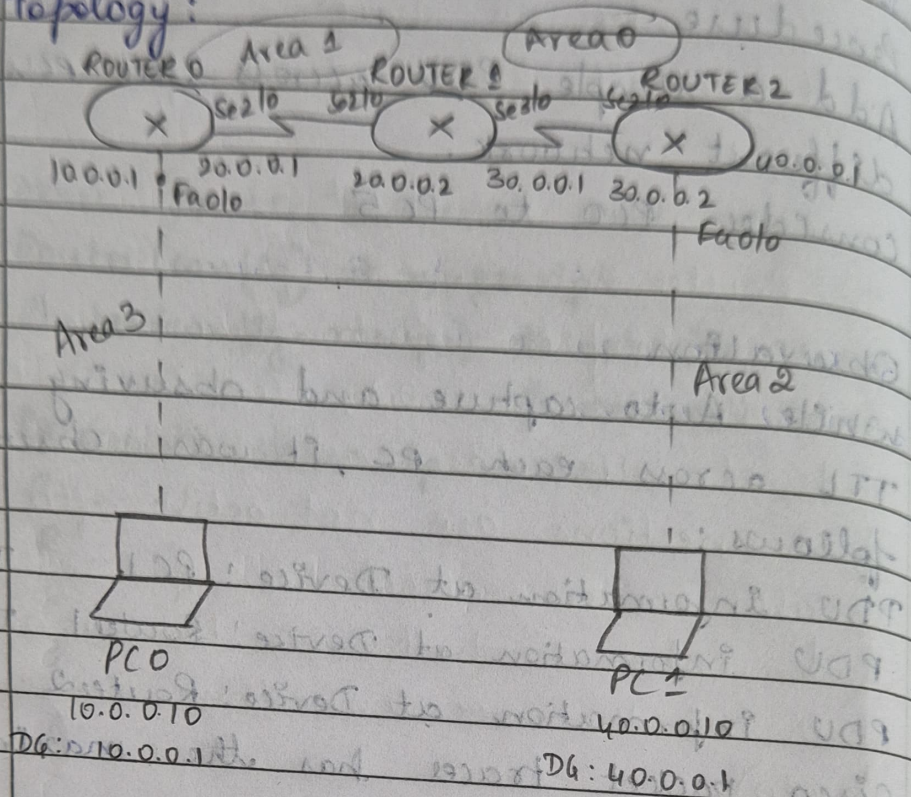 Topology:
Area 1
Area 0
ROUTER 0
ROUTER 1
ROUTER 2
Se2/0
Se2/0
Se3/0
Se2/0
10.0.0.1
20.0.0.1
20.0.0.2
30.0.0.1
30.0.0.2
40.0.0.1
Fa0/0
Fa0/0
Area 3
Area 2
PC0
PC1
10.0.0.10
40.0.0.10
DG: 10.0.0.1
DG: 40.0.0.1